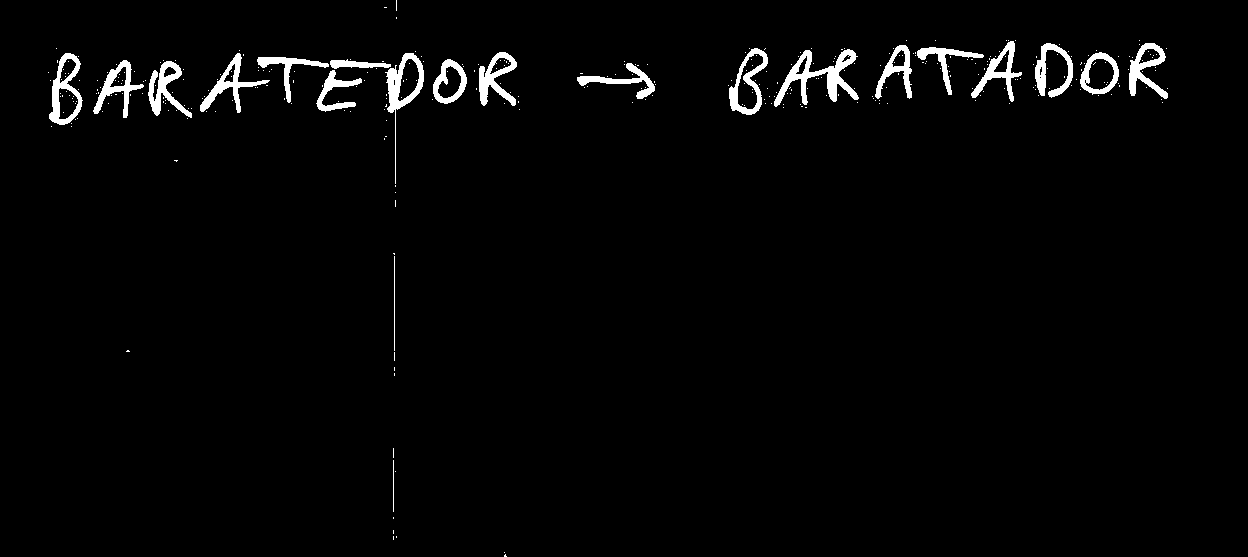 BARATEDOR → BARATADOR